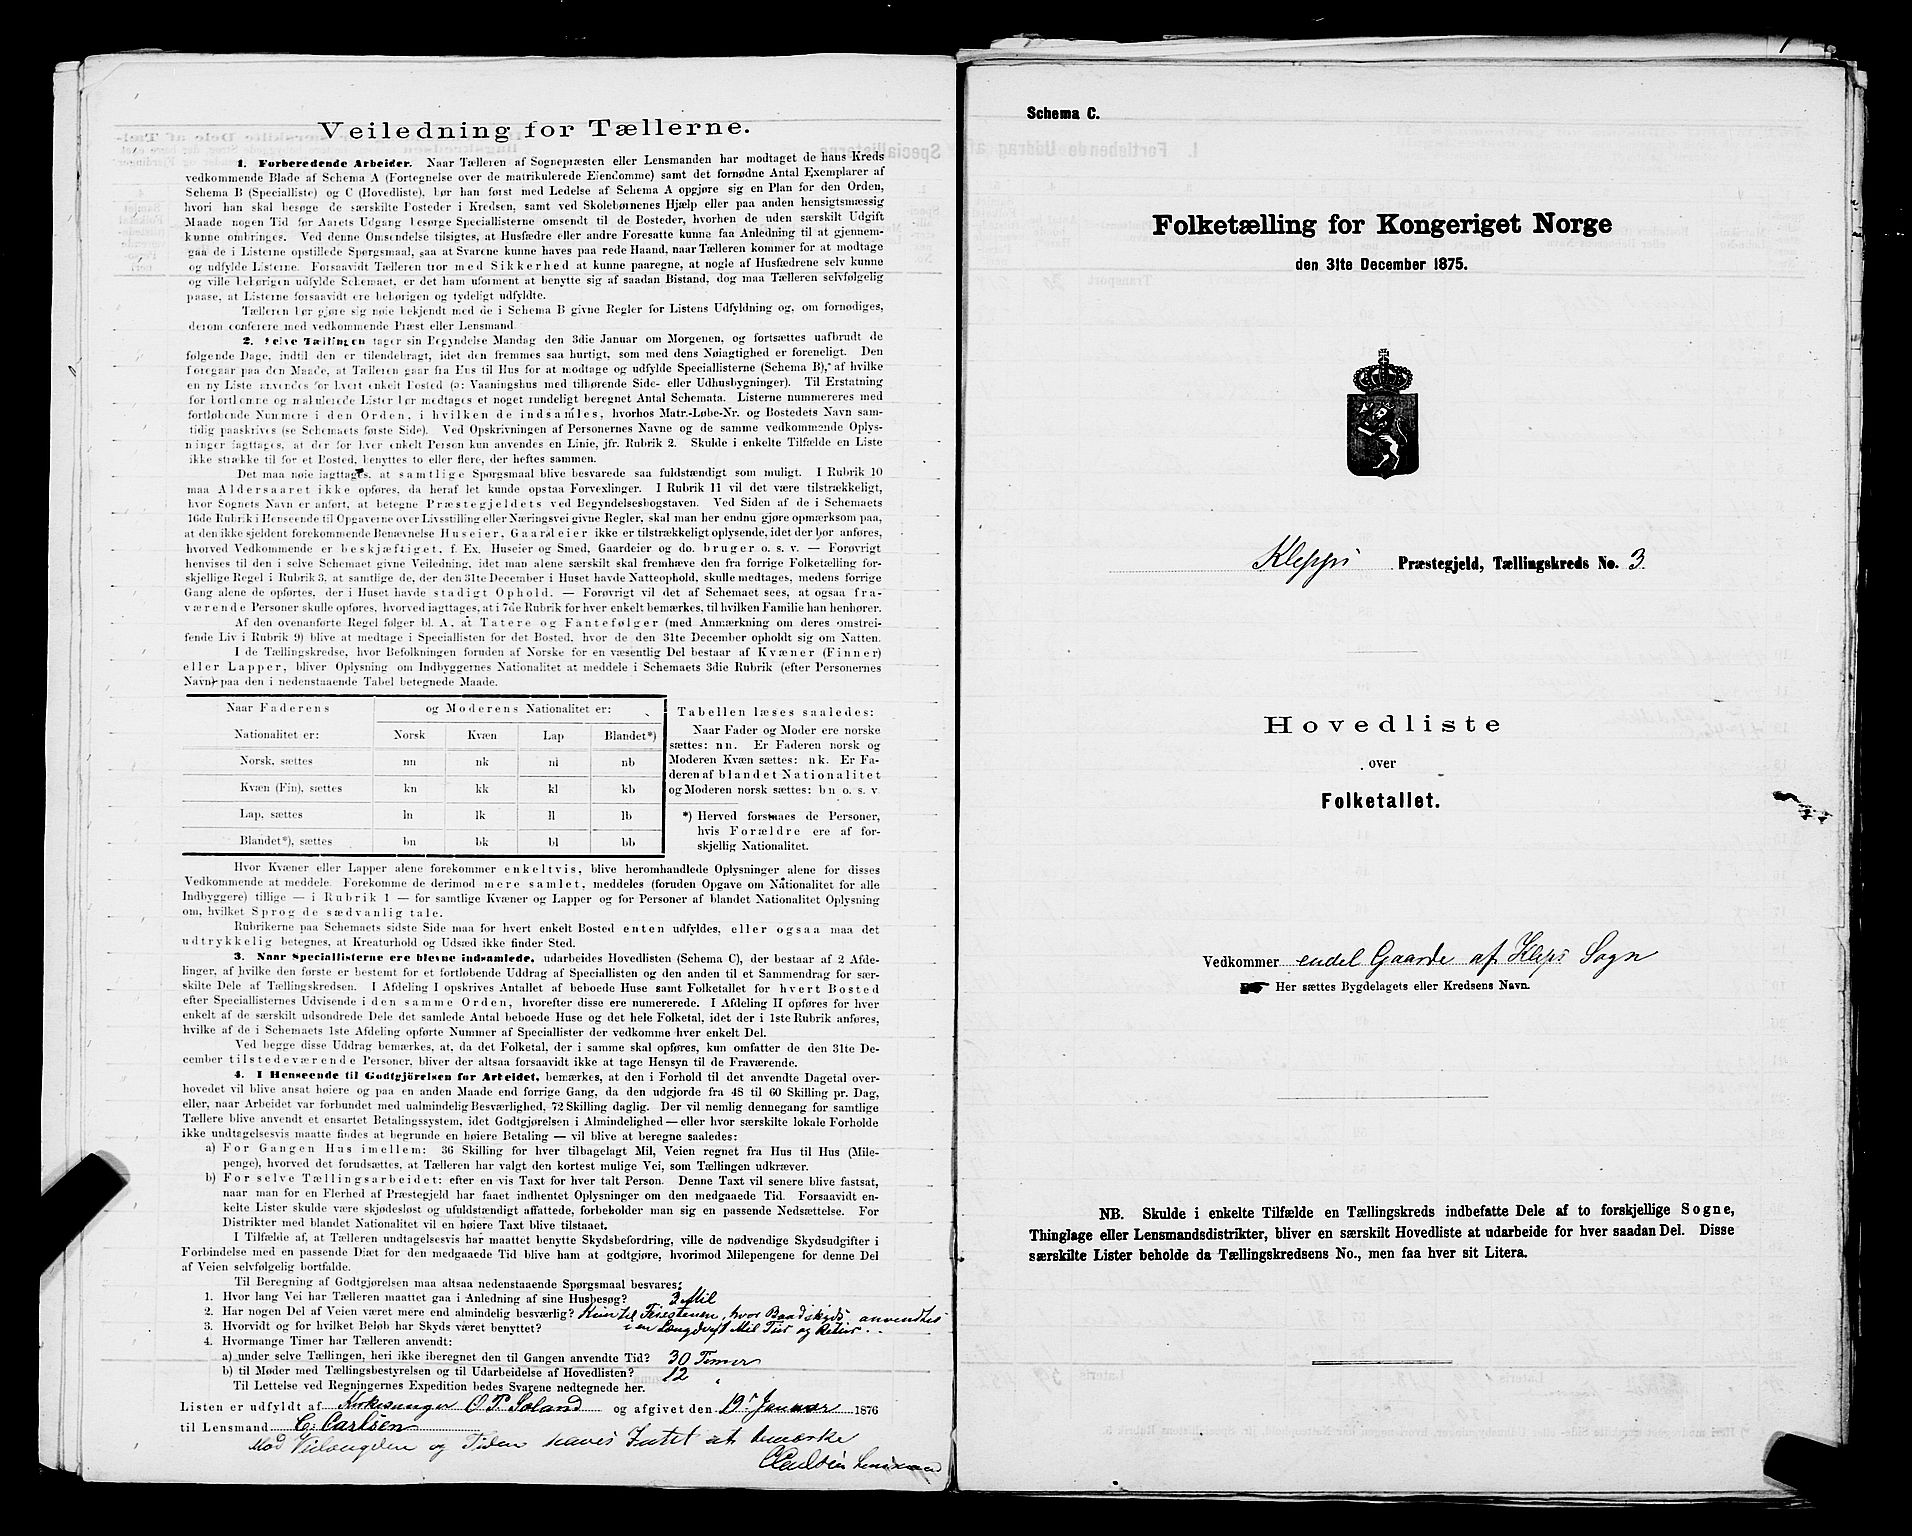 Veiledning for Tællerne.
1. Forberedende Arbeider. Naar Tælleren af Sognepræsten eller Lensmanden har modtaget de hans Kreds
vedkommende Blade af Schema A (Fortegnelse over de matrikulerede Eiendomme) samt det fornødne Antal Exemplarer af
Schema B (Specialliste) og C (Hovedliste), bør han først med Ledelse af Schema A opgjøre sig en Plan for den Orden,
hvori han skal besøge de særskilte Bosteder i Kredsen, samt ved Skolebørnenes Hjælp eller paa anden hensigtsmæssig
Maade nogen Tid før Aarets Udgang besørge Speciallisterne omsendt til de Bosteder, hvorhen de uden særskilt Udgift
kunne ombringes. Ved denne Omsendelse tilsigtes, at Husfædre eller andre Foresatte kunne faa Anledning til at gjennem-
gaa de i Listerne opstillede Spørgsmaal, saa at Svarene kunne haves paa rede Haand, naar Tælleren kommer for at modtage
og udfylde Listerne. Forsaavidt Tælleren tror med Sikkerhed at kunne paaregne, at nogle af Husfædrene selv kunne
og ville behørigen udfylde Schemaet, er det ham uforment at benytte sig af saadan Bistand, dog maa Tælleren selvfølgelig
paase, at Listerne forsaavidt ere behørigen og tydeligt udfyldte.
Tælleren bør gjøre sig nøie bekjendt med de i Schema B givne Regler for Listens Udfyldning og, om fornødiges,
derom conferere med vedkommende Præst eller Lensmand.
2. Selve Tællingen tager sin Begyndelse Mandag den 3die Januar om Morgenen, og fortsættes uafbrudt de
følgende Dage, indtil den er tilendebragt, idet den fremmes saa hurtigt, som med dens Nøiagtighed er foreneligt. Den
foregaar paa den Maade, at Tælleren gaar fra Hus til Hus for at modtage og udfylde Speciallisterne (Schema B), af hvilke
en ny Liste anvendes for hvert enkelt Bosted (ɔ: Vaaningshus med tilhørende Side- eller Udhusbygninger). Til Erstatning
for bortkomne og makulerede Lister bør medtages et noget rundeligt beregnet Antal Schemata. Listerne nummereres med
fortløbende Nummere i den Orden, i hvilken de indsamles, hvorhos Matr.-Løbe-Nr. og Bostedets Navn sam-
tidig paaskrives (se Schemaets første Side). Ved Opskrivningen af Personernes Navne og de samme vedkommende Oplys-
ninger iagttages, at der for hver enkelt Person kun anvendes en Linie, jfr. Rubrik 2. Skulde i enkelte Tilfælde en Liste
ikke strække til for et Bosted, benyttes to eller flere, der heftes sammen.
Det maa nøie iagttages, at samtlige Spørgsmaal blive besvarede saa fuldstændigt som muligt. I Rubrik 10
maa Aldersaaret ikke opføres, da heraf let kunde opstaa Forvexlinger. I Rubrik 11 vil det være tilstrækkeligt,
hvor Sognets Navn er anført, at betegne Præstegjeldets ved Begyndelsesbogstaven. Ved Siden af de i Schemaets
16de Rubrik i Henseende til Opgaverne over Livsstilling eller Næringsvei givne Regler, skal man her endnu gjøre opmærksom paa,
at den ikke sjeldent forekommende Benævnelse Huseier, Gaardeier ikke er tilstrækkeligt oplysende, idet der bør anføres,
hvorved Vedkommende er beskjæftiget, f. Ex. Huseier og Smed, Gaardeier og do. bruger o. s. v. — Forøvrigt
henvises til den i selve Schemaet givne Veiledning, idet man alene særskilt skal fremhæve den fra forrige Folketælling for-
skjellige Regel i Rubrik 3, at samtlige de, der den 31te December i Huset havde Natteophold, skulle medtages, medens forrige
Gang alene de opførtes, der i Huset havde stadigt Ophold. — Forøvrigt vil det af Schemaet sees, at ogsaa fra-
værende Personer skulle opføres, hvorved iagttages, at i 7de Rubrik for hver enkelt bemærkes, til hvilken Familie han henhører.
Af den ovenanførte Regel følger bl. A. at Tatere og Fantefølger (med Anmærkning om deres omstrei-
fende Liv i Rubrik 9) blive at medtage i Speciallisten for det Bosted, hvor de den 31te December opholdt sig om Natten.
I de Tællingskredse, hvor Befolkningen foruden af Norske for en væsentlig Del bestaar af Kvæner (Finner)
eller Lapper, bliver Oplysning om Indbyggernes Nationalitet at meddele i Schemaets 3die Rubrik (efter Personernes
Navn) paa den i nedenstaaende Tabel betegnede Maade.
Naar Faderens og Moderens Nationalitet er:
Nationalitet er: Norsk Kvæn Lap Blandet*)
Norsk, sættes nn nk nl nb
Kvæn (Fin), sættes kn kk kl kb
Lap, sættes ln lk ll lb
Blandet*), sættes bn bk bl bb
Tabellen læses saaledes:
Naar Fader og Moder ere norske
sættes: nn. Er Faderen norsk og
Moderen Kvæn sættes: nk. Er Fa-
deren af blandet Nationalitet
og Moderen norsk sættes: bn o. s. v.
*) Herved forstaaes de Personer,
hvis Forældre ere af for-
skjellig Nationalitet.
Hvor Kvæner eller Lapper alene forekommer enkeltvis, blive heromhandlede Oplysninger alene for disses
Vedkommende at meddele. Forekomme de derimod mere samlet, meddeles (foruden Opgave om Nationalitet for alle
Indbyggere) tillige — i Rubrik 1 — for samtlige Kvæner og Lapper og for Personer af blandet Nationalitet Oplysning
om, hvilket Sprog de sædvanlig tale.
Rubrikerne paa Schemaets sidste Side maa for hvert enkelt Bosted enten udfyldes, eller ogsaa maa det
udtrykkelig betegnes, at Kreaturhold og Udsæd ikke finder Sted.
3. Naar Speciallisterne ere blevne indsamlede, udarbeides Hovedlisten (Schema C), der bestaar af 2 Afde-
linger, af hvilke den første er bestemt for et fortløbende Uddrag af Speciallisten og den anden til et Sammendrag for sær-
skilte Dele af Tællingskredsen. I Afdeling I opskrives Antallet af beboede Huse samt Folketallet for hvert Bosted
efter Speciallisternes Udvisende i den samme Orden, hvorefter disse ere numererede. I Afdeling II opføres for hver
enkelt af de særskilt udsondrede Dele det samlede Antal beboede Huse og det hele Folketal, idet der i 1ste Rubrik anføres,
hvilke af de i Schemaets 1ste Afdeling opførte Nummer af Speciallister der vedkomme hver enkelt Del.
Ved begge disse Uddrag bemærkes, at, da det Folketal, der i samme skal opføres, kun omfatter de den 31te De-
cember tilstedeværende Personer, bliver der altsaa forsaavidt ikke at tage Hensyn til de Fraværende.
4. I Henseende til Godtgjörelsen for Arbeidet, bemærkes, at den i Forhold til det anvendte Dagetal over-
hovedet vil blive ansat høiere og paa en anden Maade end forrige Gang, da den udgjorde fra 48 til 60 Skilling pr. Dag,
eller, naar Arbeidet var forbundet med ualmindelig Besværlighed, 72 Skilling daglig. Der vil nemlig dennegang for samtlige
Tællere blive anvendt et ensartet Betalingssystem, idet Godtgjørelsen i Almindelighed — eller hvor særskilte lokale Forholde
ikke undtagelsesvis maatte findes at begrunde en høiere Betaling — vil blive at beregne saaledes:
a) For Gangen Hus imellem: 36 Skilling for hver tilbagelagt Mil, Veien regnet fra Hus til Hus (Mile-
penge), hvorved det forudsættes, at Tælleren har valgt den kortest mulige Vei, som Tællingen udkræver.
b) For selve Tællingsarbeidet: efter en vis Taxt for hver talt Person. Denne Taxt vil senere blive fastsat,
naar man for en Flerhed af Præstegjeld har faaet indhentet Oplysninger om den medgaaede Tid. Forsaavidt en-
kelte Lister skulde være skjødesløst og ufuldstændigt affattede, forbeholder man sig en passende Nedsættelse. For
Distrikter med blandet Nationalitet vil en høiere Taxt blive tilstaaet.
I Tilfælde af, at Tælleren undtagelsesvis har maattet benytte Skydsbefordring, ville de nødvendige Skydsudgifter i
Forbindelse med en passende Diæt for den medgaaede Tid blive ham at godtgjøre, hvorimod Milepengene for denne Del
af Veien selvfølgelig bortfalde.
Til Beregning af Godtgjørelsen maa altsaa nedenstaaende Spørgsmaal besvares:
1. Hvor lang Vei har Tælleren maattet gaa i Anledning af sine Husbesøg? 3 Mil
2. Har nogen Del af Veien været mere end almindelig besværlig? Kun til Feiestenen, hvor Baadskyds anvendtes
3. Hvorvidt og for hvilket Beløb har Skyds været benyttet? i en Længde af 1 Mil Tur og Retur.
4. Hvormange Timer har Tælleren anvendt:
a) under selve Tællingen, heri ikke iberegnet den til Gangen anvendte Tid? 30 Timer
b) til Møder med Tællingsbestyrelsen og til Udarbeidelse af Hovedlisten? 12 "
Til Lettelse ved Regningernes Expedition bedes Svarene nedtegnede her.
Listen er udfyldt af Kirkesanger O. P. Soland og afgivet den 19de Januar 1876
til Lensmand C. Carlsen
Mod Veilængden og Tiden haves Intet at bemærke
CCarlsen Lensmand
Schema C.
Folketælling for Kongeriget Norge
den 31te December 1875.
Klepps Præstegjeld, Tællingskreds No. 3.
Hovedliste
over
Folketallet.
Vedkommer endel Gaarde af Klepps Sogn
Her sættes Bygdelagets eller Kredsens Navn.
NB. Skulde i enkelte Tilfælde en Tællingskreds indbefatte Dele af to forskjellige Sogne,
Thinglage eller Lensmandsdistrikter, bliver en særskilt Hovedliste at udarbeide for hver saadan Del. Disse
særskilte Lister beholde da Tællingskredsens No., men faa hver sit Litera.